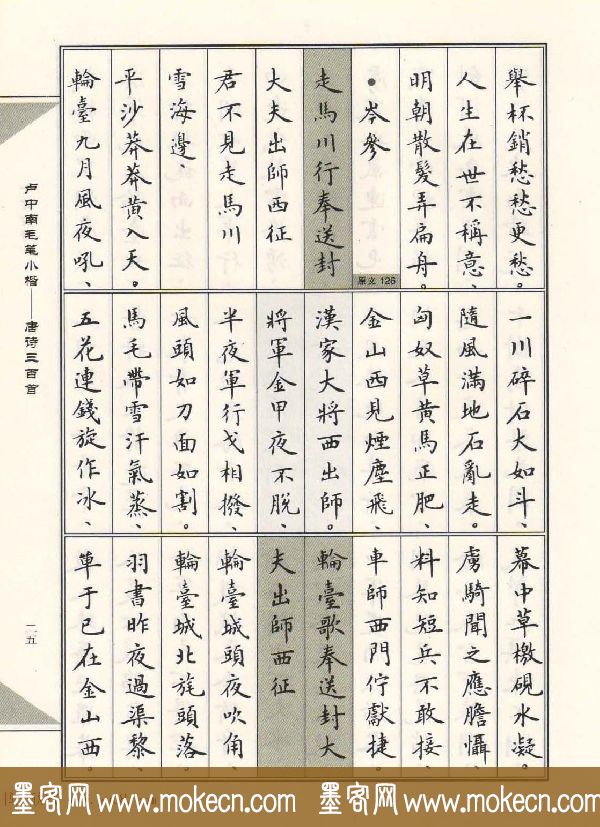 舉杯銷愁愁更愁。
人生在世不稱意、
明朝散髮弄扁舟。
•岑參
走馬川行奉送封
大夫出師西征
君不見走馬川
雪海邊
平沙莽莽黃入天。
輪臺九月風夜吼、
原文 126
一川碎石大如斗、
隨風滿地石亂走。
匈奴草黃馬正肥、
金山西見煙塵飛、
漢家大將西出師。
將軍金甲夜不脫、
半夜軍行戈相撥、
風頭如刀面如割。
馬毛帶雪汗氣蒸、
五花連錢旋作冰、
幕中草檄硯水凝。
虜騎聞之應膽懾、
料知短兵不敢接、
車師西門佇獻捷。
輪臺歌奉送封大
夫出師西征
輪臺城頭夜吹角、
輪臺城北旄頭落。
羽書昨夜過渠黎、
單于已在金山西。
卢中南毛笔小楷——唐诗三百首
二五
墨客网 www.mokecn.com 墨客网 www.mokecn.com